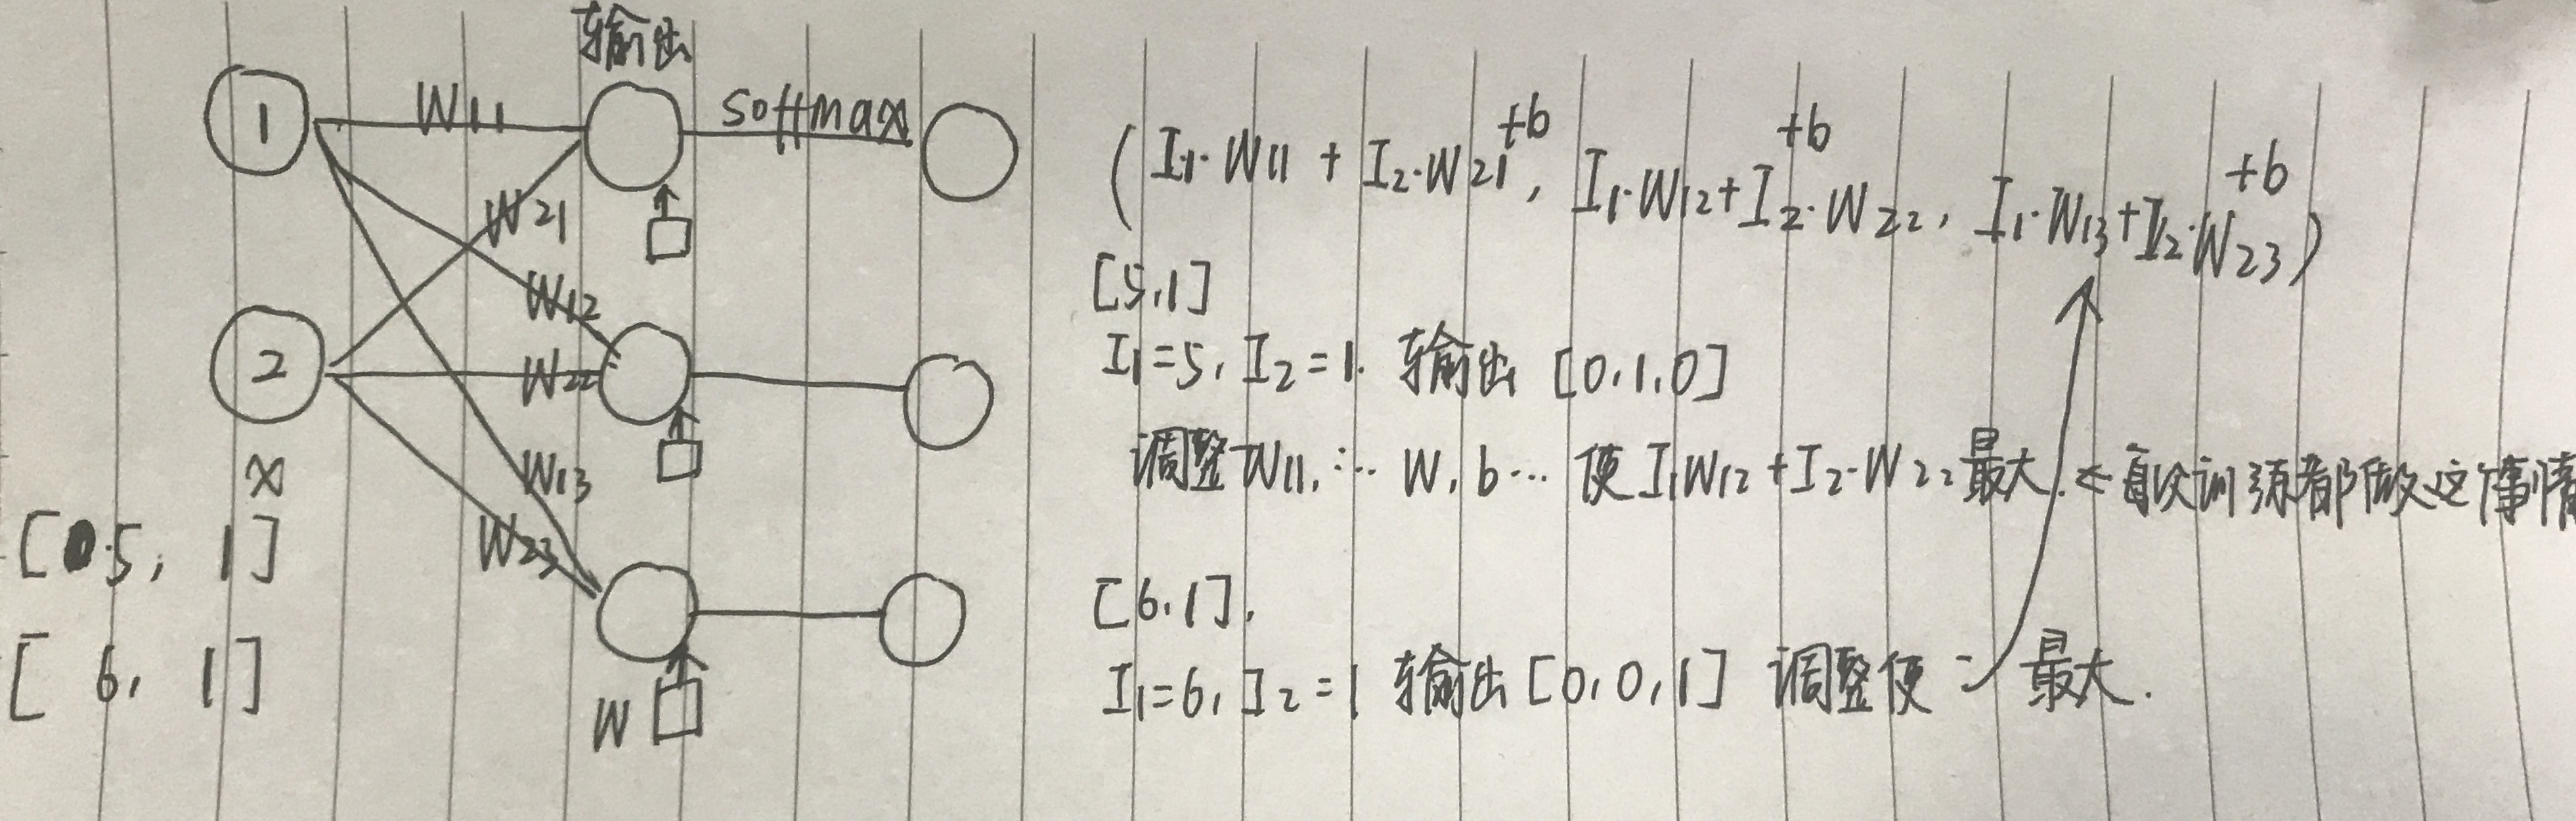 输出
1
W11
softmax
W21
W12
2
W22
W13
W23
x
[5, 1]
[6, 1]
W
(I1·W11 + I2·W21+b, I1·W12+I2·W22+b, I1·W13+I2·W23+b)
[5,1]
I1=5, I2=1. 输出 [0,1,0]
调整W11, … W, b … 使 I1W12+I2·W22最大. ← 每次训练都做这事情
[6,1].
I1=6, I2=1 输出[0,0,1] 调整使 最大.